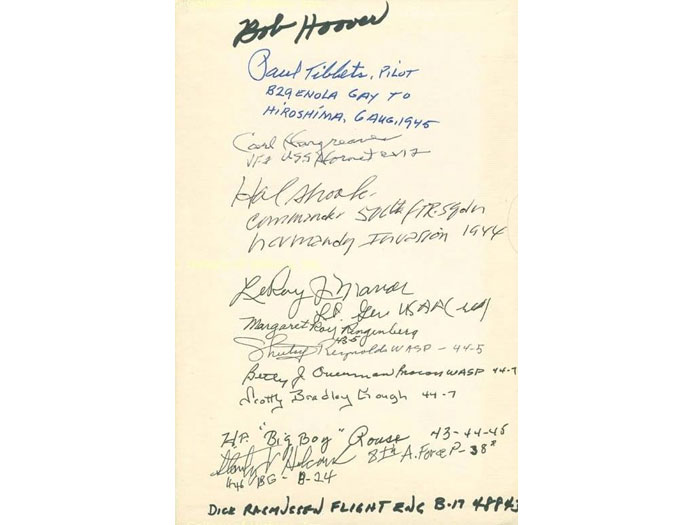 Bob Hoover
Paul Tibbets, PILOT
B29 ENOLA GAY TO
HIROSHIMA, 6 AUG, 1945
Carl Hargreaves
USS Hornet CV12
Hal Shook
Commander 506th FTR. Sqdn
Normandy Invasion 1944
LeRoy J Manor
Lt. Gen USAF (ret)
Margaret Ray Ringenberg
43-5
Shirley Reynolds WASP - 44-5
Betty J. WASP 44-7
Scotty Bradley Gough 44-7
H.P. "Big Boy" Rouse 43-44-45
8th A. Force P-38s
Stanley V Holcomb
446 BG - B-24
DICK RASMUSSEN FLIGHT ENG B-17